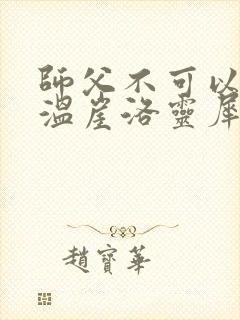 師父不可以
溫崖洛靈犀
趙寶華